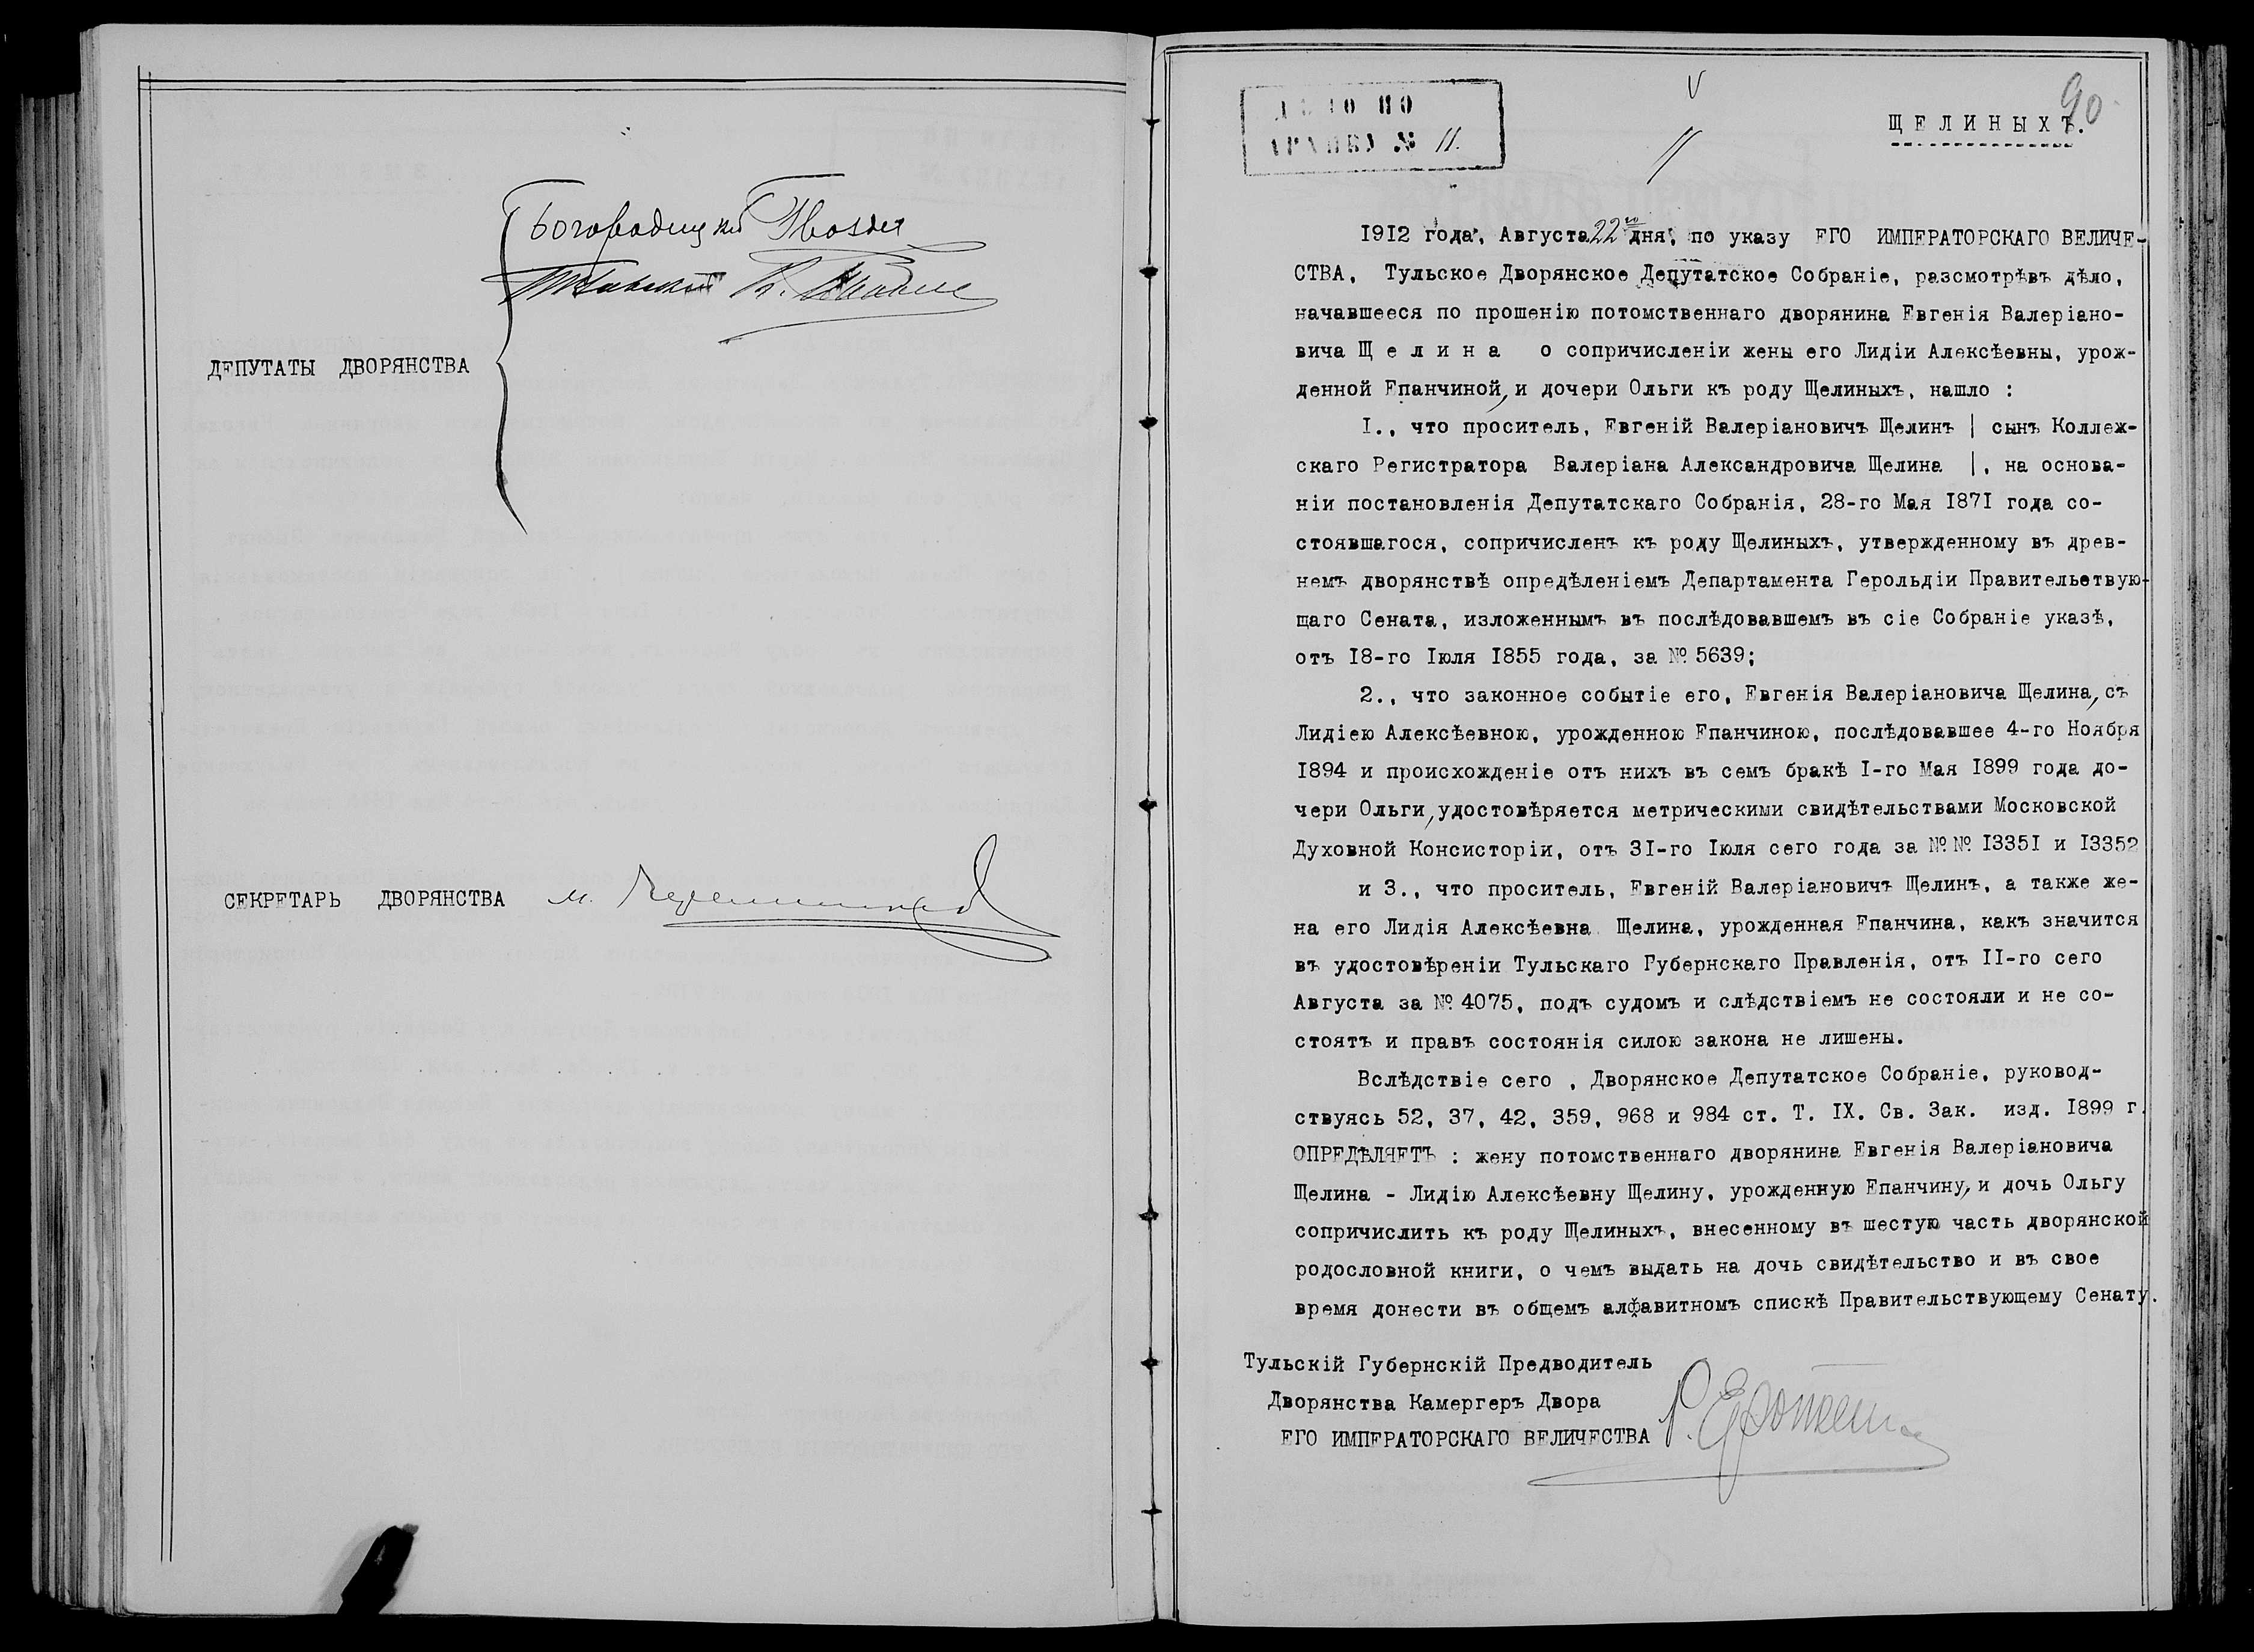 Богородицкій
ДЕПУТАТЫ ДВОРЯНСТВА
СЕКРЕТАРЬ ДВОРЯНСТВА М.
ДѢЛО ПО
АРХИВУ № 11.
11
90
ЩЕЛИНЫХЪ.
1912 года, Августа 22го дня, по указу ЕГО ИМПЕРАТОРСКАГО ВЕЛИЧЕ-
СТВА, Тульское Дворянское Депутатское Собраніе, разсмотрѣвъ дѣло,
начавшееся по прошенію потомственнаго дворянина Евгенія Валеріано-
вича Щ е л и н а о сопричисленіи жены его Лидіи Алексѣевны, урож-
денной Епанчиной, и дочери Ольги къ роду Щелиныхъ, нашло :
I., что проситель, Евгеній Валеріановичъ Щелинъ | сынъ Коллеж-
скаго Регистратора Валеріана Александровича Щелина |, на основа-
ніи постановленія Депутатскаго Собранія, 28-го Мая I87I года со-
стоявшагося, сопричисленъ къ роду Щелиныхъ, утвержденному въ древ-
немъ дворянствѣ опредѣленіемъ Департамента Герольдіи Правительствую-
щаго Сената, изложеннымъ въ послѣдовавшемъ въ сіе Собраніе указѣ,
отъ I8-го Іюля I855 года, за № 5639;
2., что законное событіе его, Евгенія Валеріановича Щелина, съ
Лидіею Алексѣевною, урожденною Епанчиною, послѣдовавшее 4-го Ноября
I894 и происхожденіе отъ нихъ въ семъ бракѣ I-го Мая I899 года до-
чери Ольги, удостовѣряется метрическими свидѣтельствами Московской
Духовной Консисторіи, отъ 3I-го Іюля сего года за №№ I335I и I3352
и 3., что проситель, Евгеній Валеріановичъ Щелинъ, а также же-
на его Лидія Алексѣевна Щелина, урожденная Епанчина, какъ значится
въ удостовѣреніи Тульскаго Губернскаго Правленія, отъ II-го сего
Августа за № 4075, подъ судомъ и слѣдствіемъ не состояли и не со-
стоятъ и правъ состоянія силою закона не лишены.
Вслѣдствіе сего , Дворянское Депутатское Собраніе, руковод-
ствуясь 52, 37, 42, 359, 968 и 984 ст. Т. IX. Св. Зак. изд. I899 г.
ОПРЕДѢЛЯЕТЪ : жену потомственнаго дворянина Евгенія Валеріановича
Щелина - Лидію Алексѣевну Щелину, урожденную Епанчину, и дочь Ольгу
сопричислить къ роду Щелиныхъ, внесенному въ шестую часть дворянской
родословной книги, о чемъ выдать на дочь свидѣтельство и въ свое
время донести въ общемъ алфавитномъ спискѣ Правительствующему Сенату.
Тульскій Губернскій Предводитель
Дворянства Камергеръ Двора
ЕГО ИМПЕРАТОРСКАГО ВЕЛИЧЕСТВА